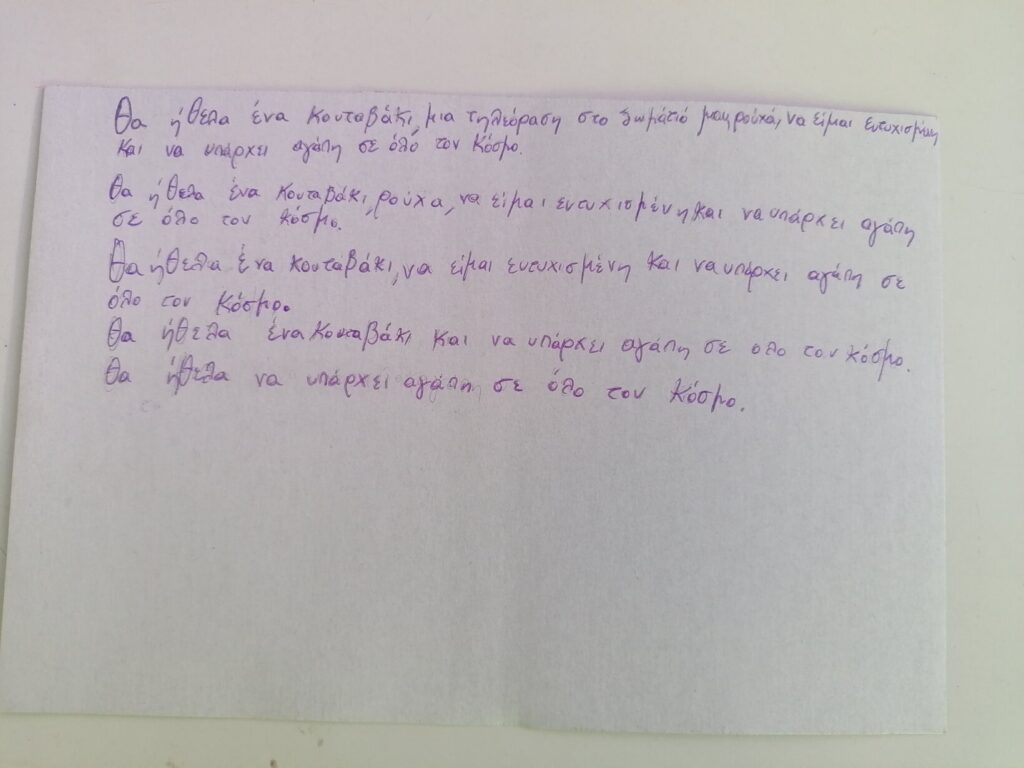 Θα ήθελα ένα κουταβάκι, μια τηλεόραση στο δωμάτιό μου, ρούχα, να είμαι ευτυχισμένη
και να υπάρχει αγάπη σε όλο τον κόσμο.
Θα ήθελα ένα κουταβάκι, ρούχα, να είμαι ευτυχισμένη και να υπάρχει αγάπη
σε όλο τον κόσμο.
Θα ήθελα ένα κουταβάκι, να είμαι ευτυχισμένη και να υπάρχει αγάπη σε
όλο τον κόσμο.
Θα ήθελα ένα κουταβάκι και να υπάρχει αγάπη σε όλο τον κόσμο.
Θα ήθελα να υπάρχει αγάπη σε όλο τον κόσμο.